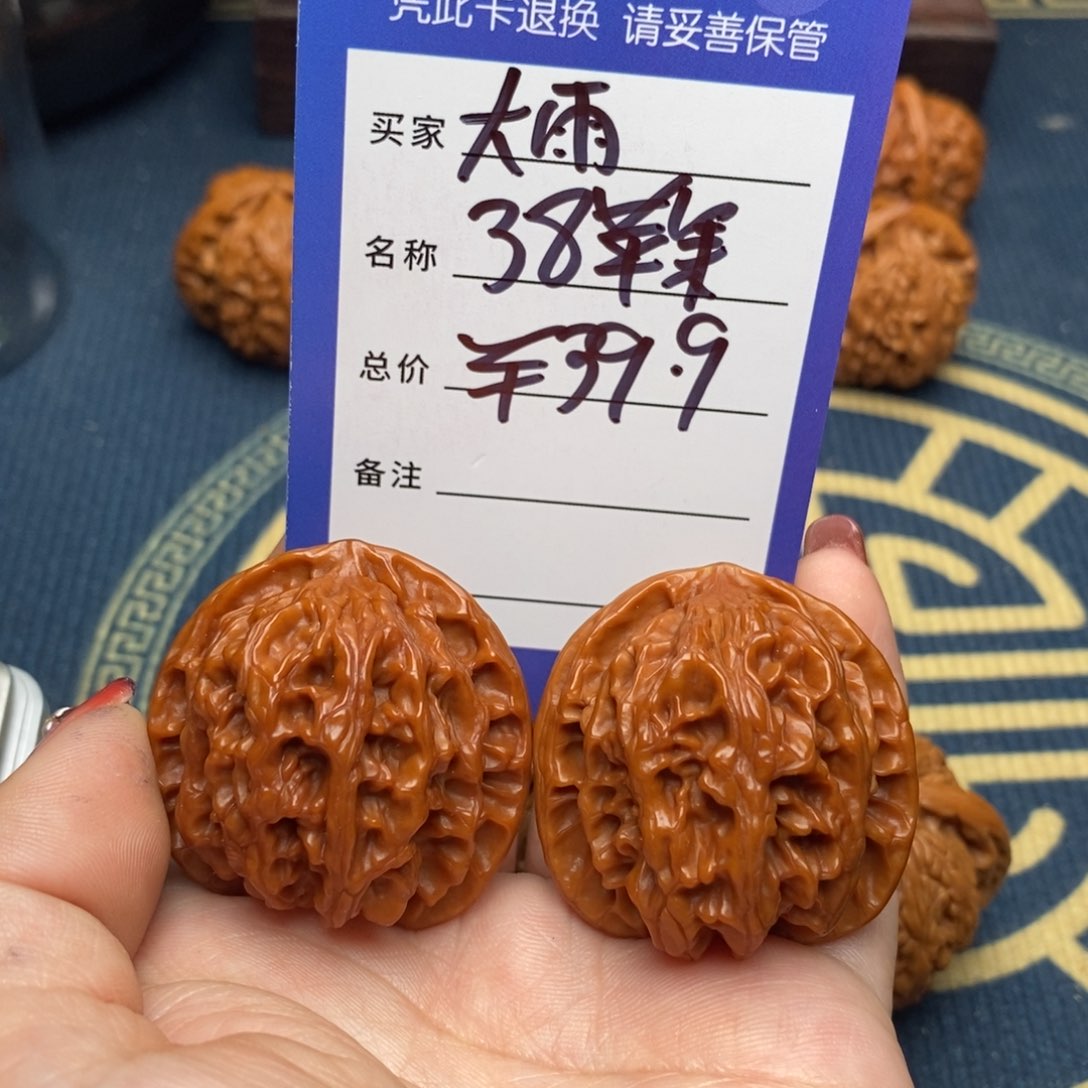 凭此卡退换 请妥善保管
买家 大雨
名称 38
总价 ¥39.9
备注